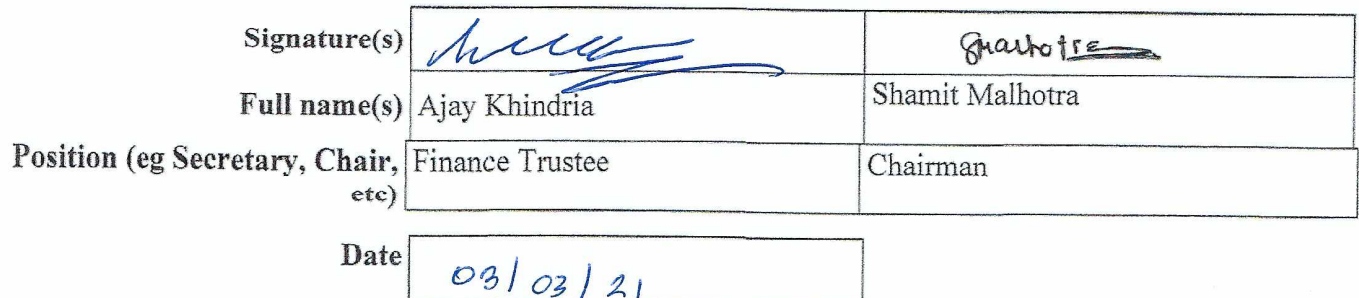 Signature(s)
Full name(s) Ajay Khindria Shamit Malhotra
Position (eg Secretary, Chair, Finance Trustee Chairman
etc)
Date 03/03/21